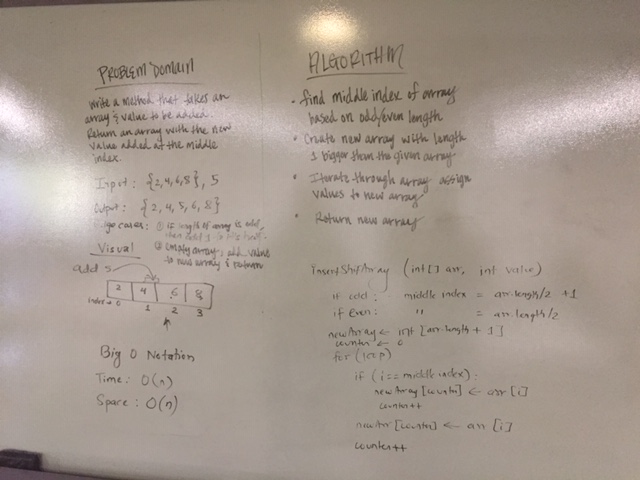 PROBLEM DOMAIN
Write a method that takes an
array & value to be added.
Return an array with the new
value added at the middle
index.
Input: {2,4,6,8}, 5
Output: {2,4,5,6,8}
Edge cases: ① if length of array is odd,
② empty array, add value
to new array & return
Visual
add 5
2 4 6 8
index → 0 1 2 3
Big O Notation
Time: O(n)
Space: O(n)
ALGORITHM
• find middle index of array
based on odd/even length
• Create new array with length
1 bigger than the given array
• Iterate through array assign
values to new array
• Return new array
insertShiftArray (int[] arr, int value)
if odd: middle index = arr.length/2 +1
if Even: " = arr.length/2
newArray ← int [arr.length + 1]
counter ← 0
for (loop)
if (i == middle index):
newArray [counter] ← arr [i]
counter++
newArr [counter] ← arr [i]
counter++